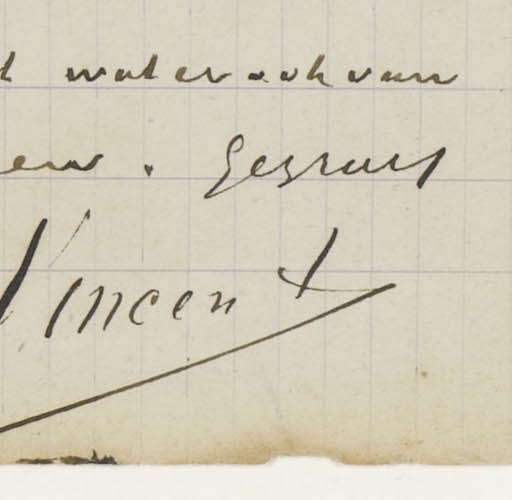 t water ook van
en. Gegroet
Vincent